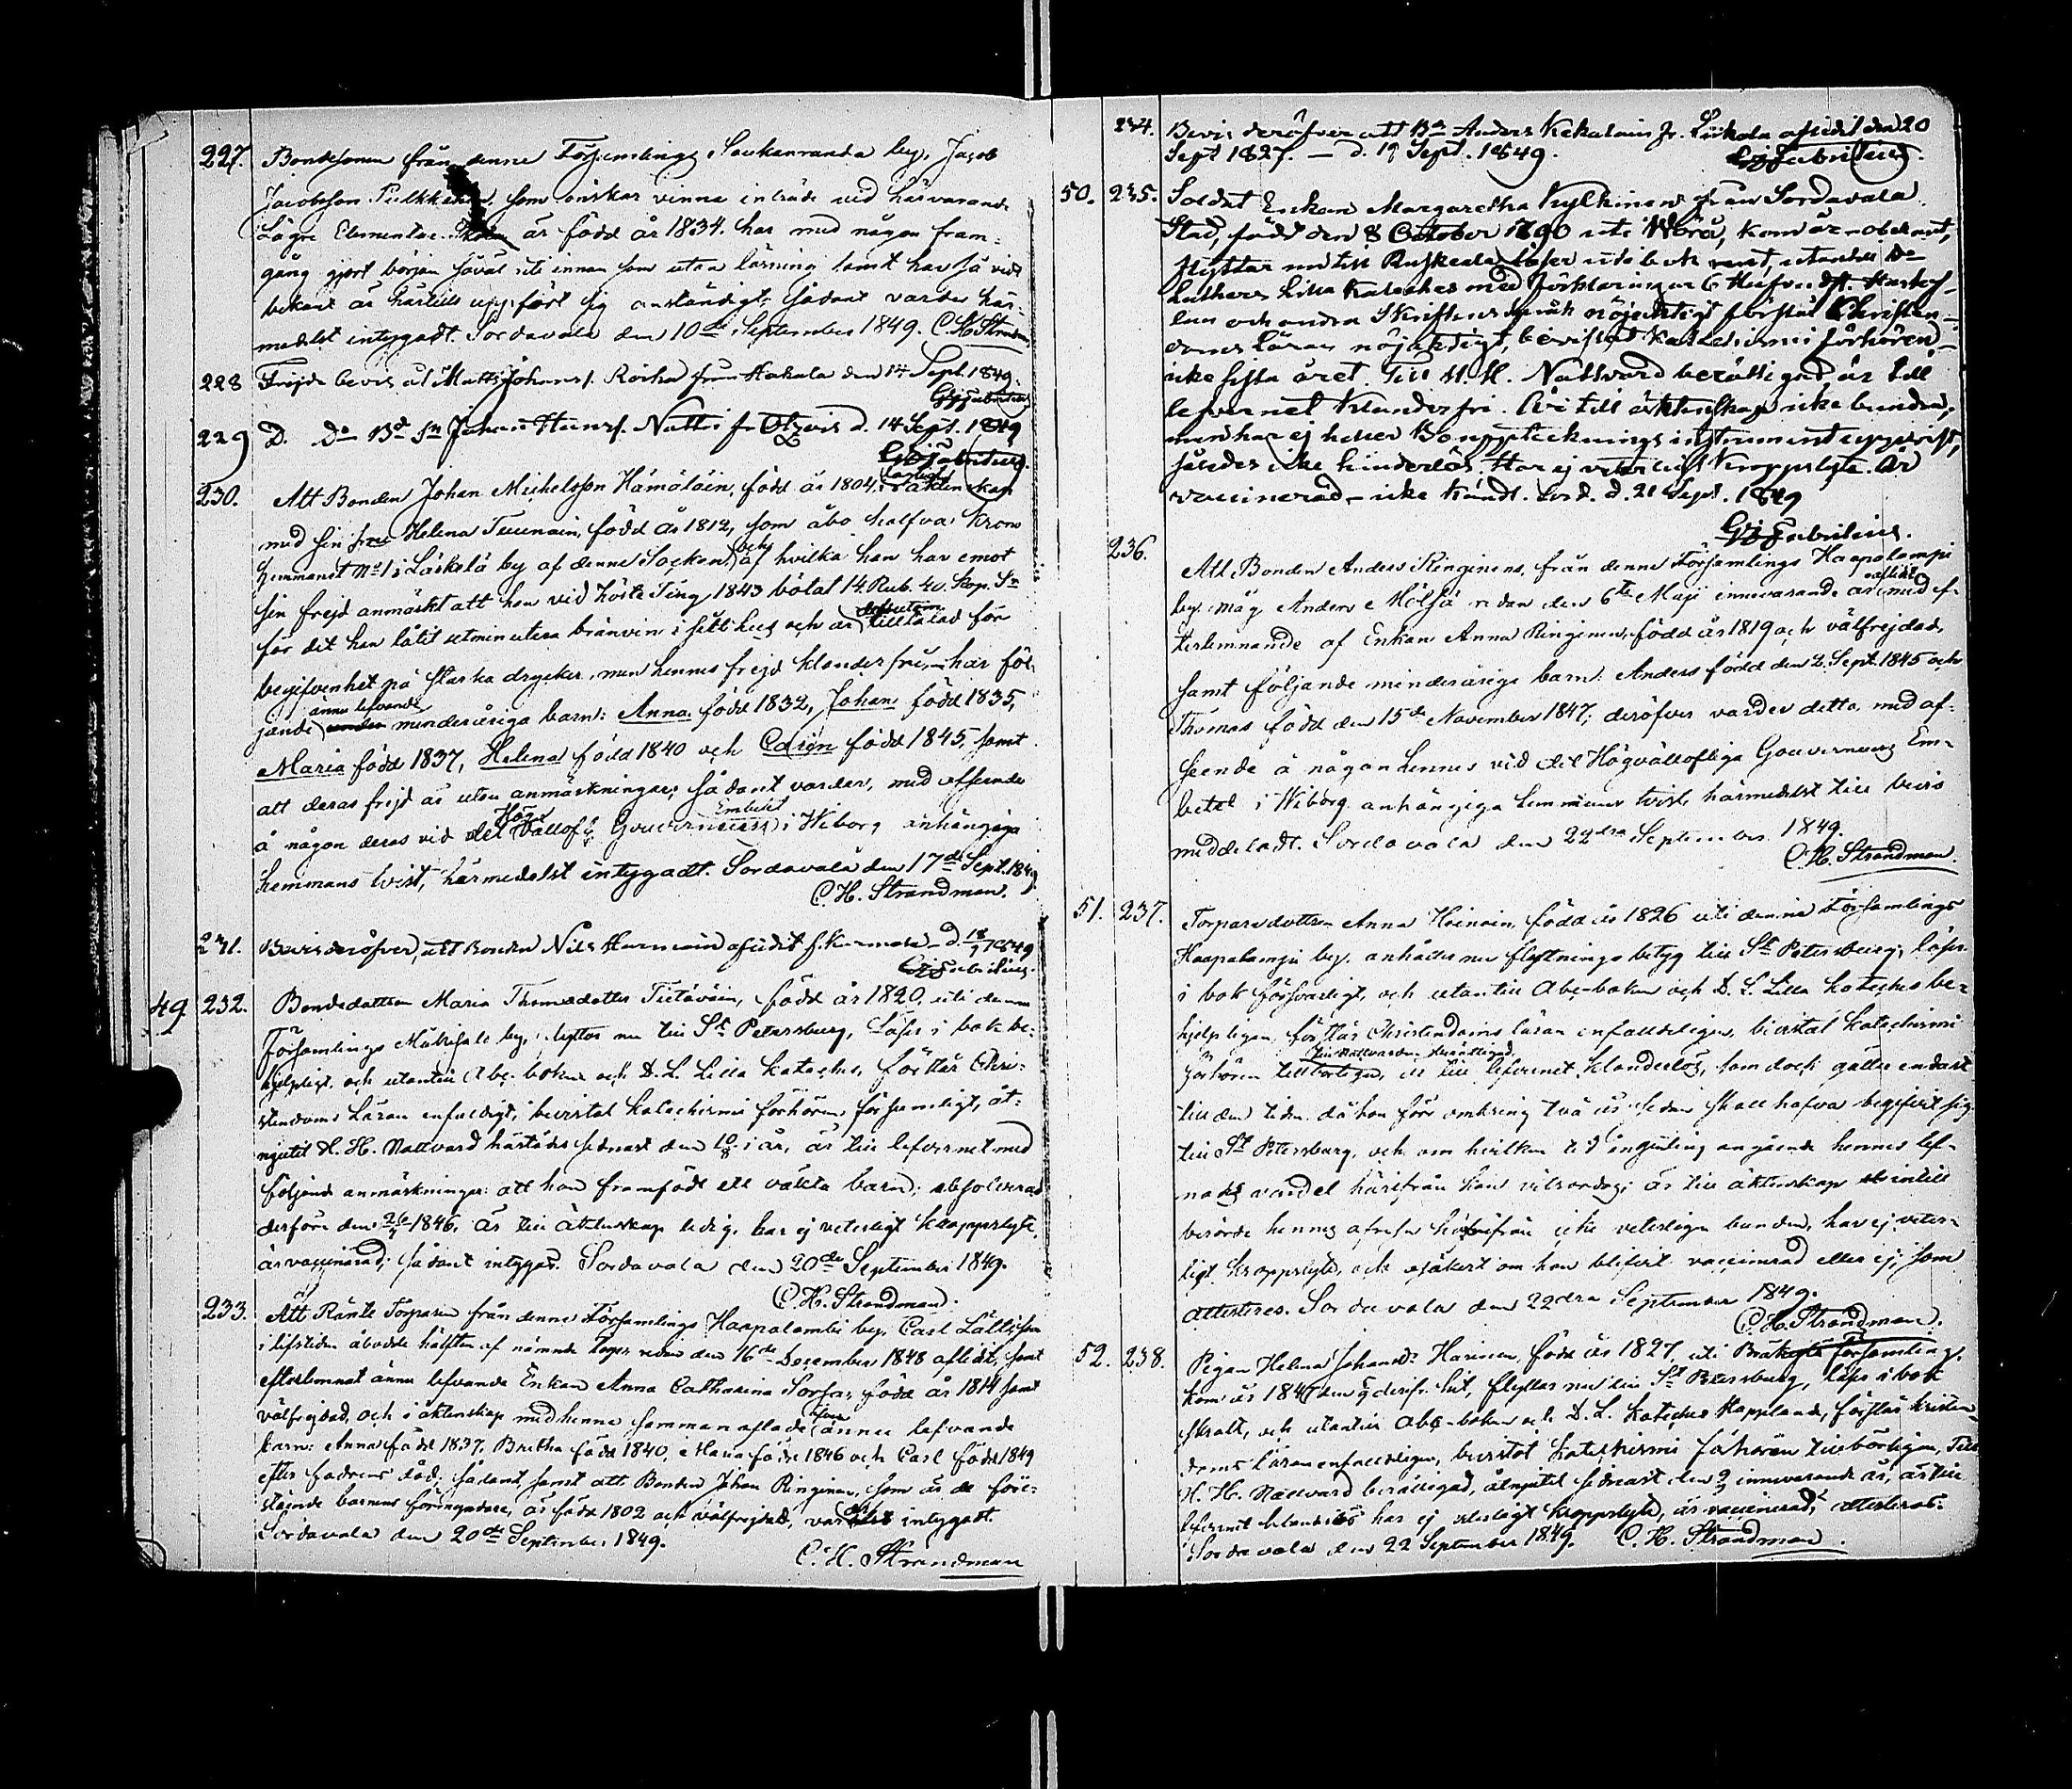 227. Bondesonen från denne Församlings Saukanranda by, Jacob
Jacobsson Pulkkinen, som önskar vinna inträde vid härvarande
Lägre Elementar-Skolan är född år 1834. har med någon fram-
gång gjort början såväl uti innan som utan läsning samt har så vidt
bekant är härtills uppfört sig anständigt; sådant varder här-
medelst intygadt. Sordavala den 10de September 1849. C. H. Strandman
228 Frejde bevis åt Matts Johans s. Roiha från Hakala den 14 Sept. 1849.
G. Fabritius
229 D. Do Bd sn Johan Hansf. Nutti fr. Otzois d. 14 Sept. 1849
G. Fabritius.
230. Att Bonden Johan Michelsson Hämäläin, född år 1804, i äktenskap
med sin hustru Helena Teuunain, född år 1812, som åbo halfva Krono
hemmanet No 1 i Läskelä by af denne Socken, och af hvilka han har emot
sin frejd anmärkt att han vid Höste Ting 1843 bötat 14 Rub. 40 Kop. Sr
för det han låtit utminutera bränvin i sitt hus och är dessutom tilltalad för
begifvenhet på starka drycker, men hennes frejd klanderfri, – har föl-
jande ännu lefvande minderåriga barn: Anna född 1832, Johan född 1835,
Maria född 1837, Helena född 1840 och Carin född 1845, samt
att deras frejd är utan anmärkningar; sådant varder, med afseende
å någon deras vid det Höga Vällofl. Gouverneurs Embetet i Wiborg anhängiga
hemmans tvist, härmedelst intygadt. Sordavala den 17de Sept. 1849.
C. H. Strandman.
231. Bevis deröfver, att Bonden Nils Hurmain aflidit f. Kurmola – d. 18/9 1849
G. Fabritius.
49 232. Bondedottren Maria Thomasdotter Tietäväin, född år 1820, uti denne
Församlings Mäkisalo by, flyttar nu till St Petersburg, Läser i bok be-
hjelpligt, och utantill Abc-boken och D. L. Lilla Kateches, förstår Chri-
stendoms Läran enfaldigt, bevistat Katechismi förhören försumligt, åt-
njutit H. H. Nattvard härstädes sednast den 10/8 i år, är till lefvernet med
följande anmärkningar: att hon framfödt ett oäkta barn; absolverad
derföre den 26/4 1846, är till äktenskap ledig, har ej veterligt kroppslyte,
är vaccinerad; sådant intygas. Sordavala den 20de September 1849.
C. H. Strandman.
233. Att Ränte Torparen från denne Församlings Haapalambi by, Carl Lätti, som
i lifstiden åbodde hälften af nämnde torp redan den 16de December 1848 aflidit, samt
efterlemnat ännu lefvande Enkan Anna Catharina Sorsa, född år 1814 samt
välfrejdad, och i äktenskap med henne sammanaflade ännu lefvande
barn: Anna född 1837, Bretha född 1840, Maria född 1846 och Carl född 1849
efter fadrens död; sådant samt att Bonden Johan Ringinen, som är de före-
stående barnens förmyndare, är född 1802 och välfrejdad, varder intygadt.
Sordavala den 20de September 1849.
C. H. Strandman
234. Bevis deröfver att Bn Anders Kekalain fr. Liikola aflidit den 20
Sept 1827. – d. 19 Sept. 1849.
G. Fabritius.
50. 235. Soldat Enkan Margaretha Kylkinen från Sordavala
Stad, född den 8 October 1790 uti Wörå, kom är obekant,
flyttar nu till Ruskeala, läser uti bok rent, utantill Dr
Luthers Lilla Kateches med förklaringar
lan och andra Skriftens språk nöjaktigt förstår Christen-
doms läran nöjaktigt, bevistat Katechismi förhören –
icke sista året. Till H. H. Nattvard berättigad, är till
lefvernet klanderfri. Är till äktenskap icke bunden,
men har ej heller Bouppteckningsinstrument uppvist,
således icke hinderlös. Har ej veterligt kroppslyte. Är
vaccinerad – icke kändt. Sord. d. 21 Sept. 1849
G. Fabritius.
236. Att Bonden Anders Ringinens, från denne Församlings Haapalampi
by, måg Anders Mölsä redan den 6te Maji innevarande år aflidit med ef-
terlemnande af Enkan Anna Ringinen, född år 1819 och välfrejdad,
samt följande minderårige barn: Anders född den 2. Sept. 1845 och
Thomas född den 15de November 1847; deröfver varder detta, med af-
seende å någon hennes vid det Högvällofliga Gouverneurs Em-
betet i Wiborg anhängiga hemmans tvist, härmedelst till bevis
meddeladt. Sordavala den 22dra September 1849.
C. H. Strandman.
51. 237. Torparedottren Anna Heinoin, född år 1826 uti denne Församlings
Haapalampi by, anhåller nu flyttnings betyg till St Petersburg; läser
i bok försvarligt, och utantill Abc-boken och D. L. Lilla Kateches be-
hjelpligen, förstår Christendoms läran enfaldeligen, bevistat Katechismi
förhören tillbörligen, till Nattvarden berättigad, är till lefvernet klanderlös, som dock gäller endast
till den tiden då hon för omkring två år sedan skall hafva begifvit sig
till St Petersburg, och om hvilken tid ingenting angående hennes lef-
nads vandel härifrån kan vitsordas; är till äktenskap intill
berörde hennes afresa härifrån icke veterligen bunden, har ej veter-
ligt kroppslyte, och osäkert om hon blifvit vaccinerad eller ej; som
attesteres. Sordavala den 22dra September 1849.
C. H. Strandman.
52. 238. Pigan Helena Johansdr Harinen, född år 1827 uti Bräkylä Församling,
kom år 1847 derifr. hit, flyttar nu till St Petersburg, läser i bok
skralt, och utantill Abc-boken och D. L. Kateches stapplande, förstår Kristen-
doms läran enfaldeligen, bevistat Katechismi förhören tillbörligen, till
H. H. Nattvard berättigad, åtnjutit sednast den innevarande år, är till
lefvernet klanderlös har ej veterligt kroppslyte, är vaccinerad; attesteras.
Sordavala den 22 September 1849. C. H. Strandman.